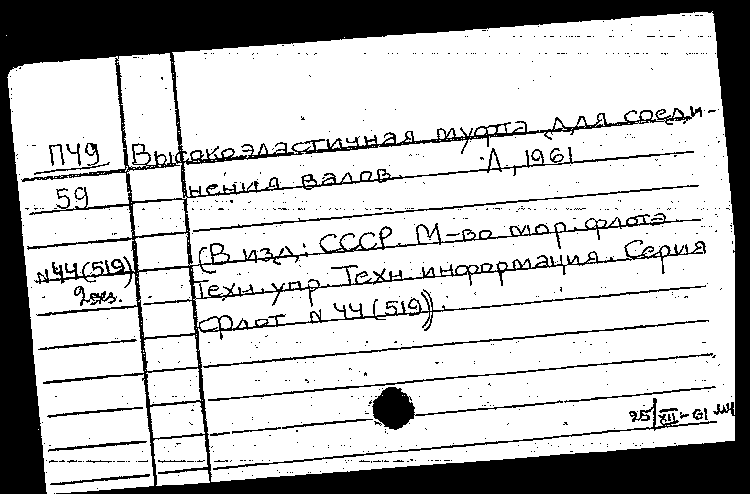 П49 Высокоэластичная муфта для соеди-
59 нения валов. Л., 1961
(В изд.: СССР. М-во мор. флота.
N44(519) Техн. упр. Техн. информация. Серия
2экз. Флот N 44(519)).
25/XII-61